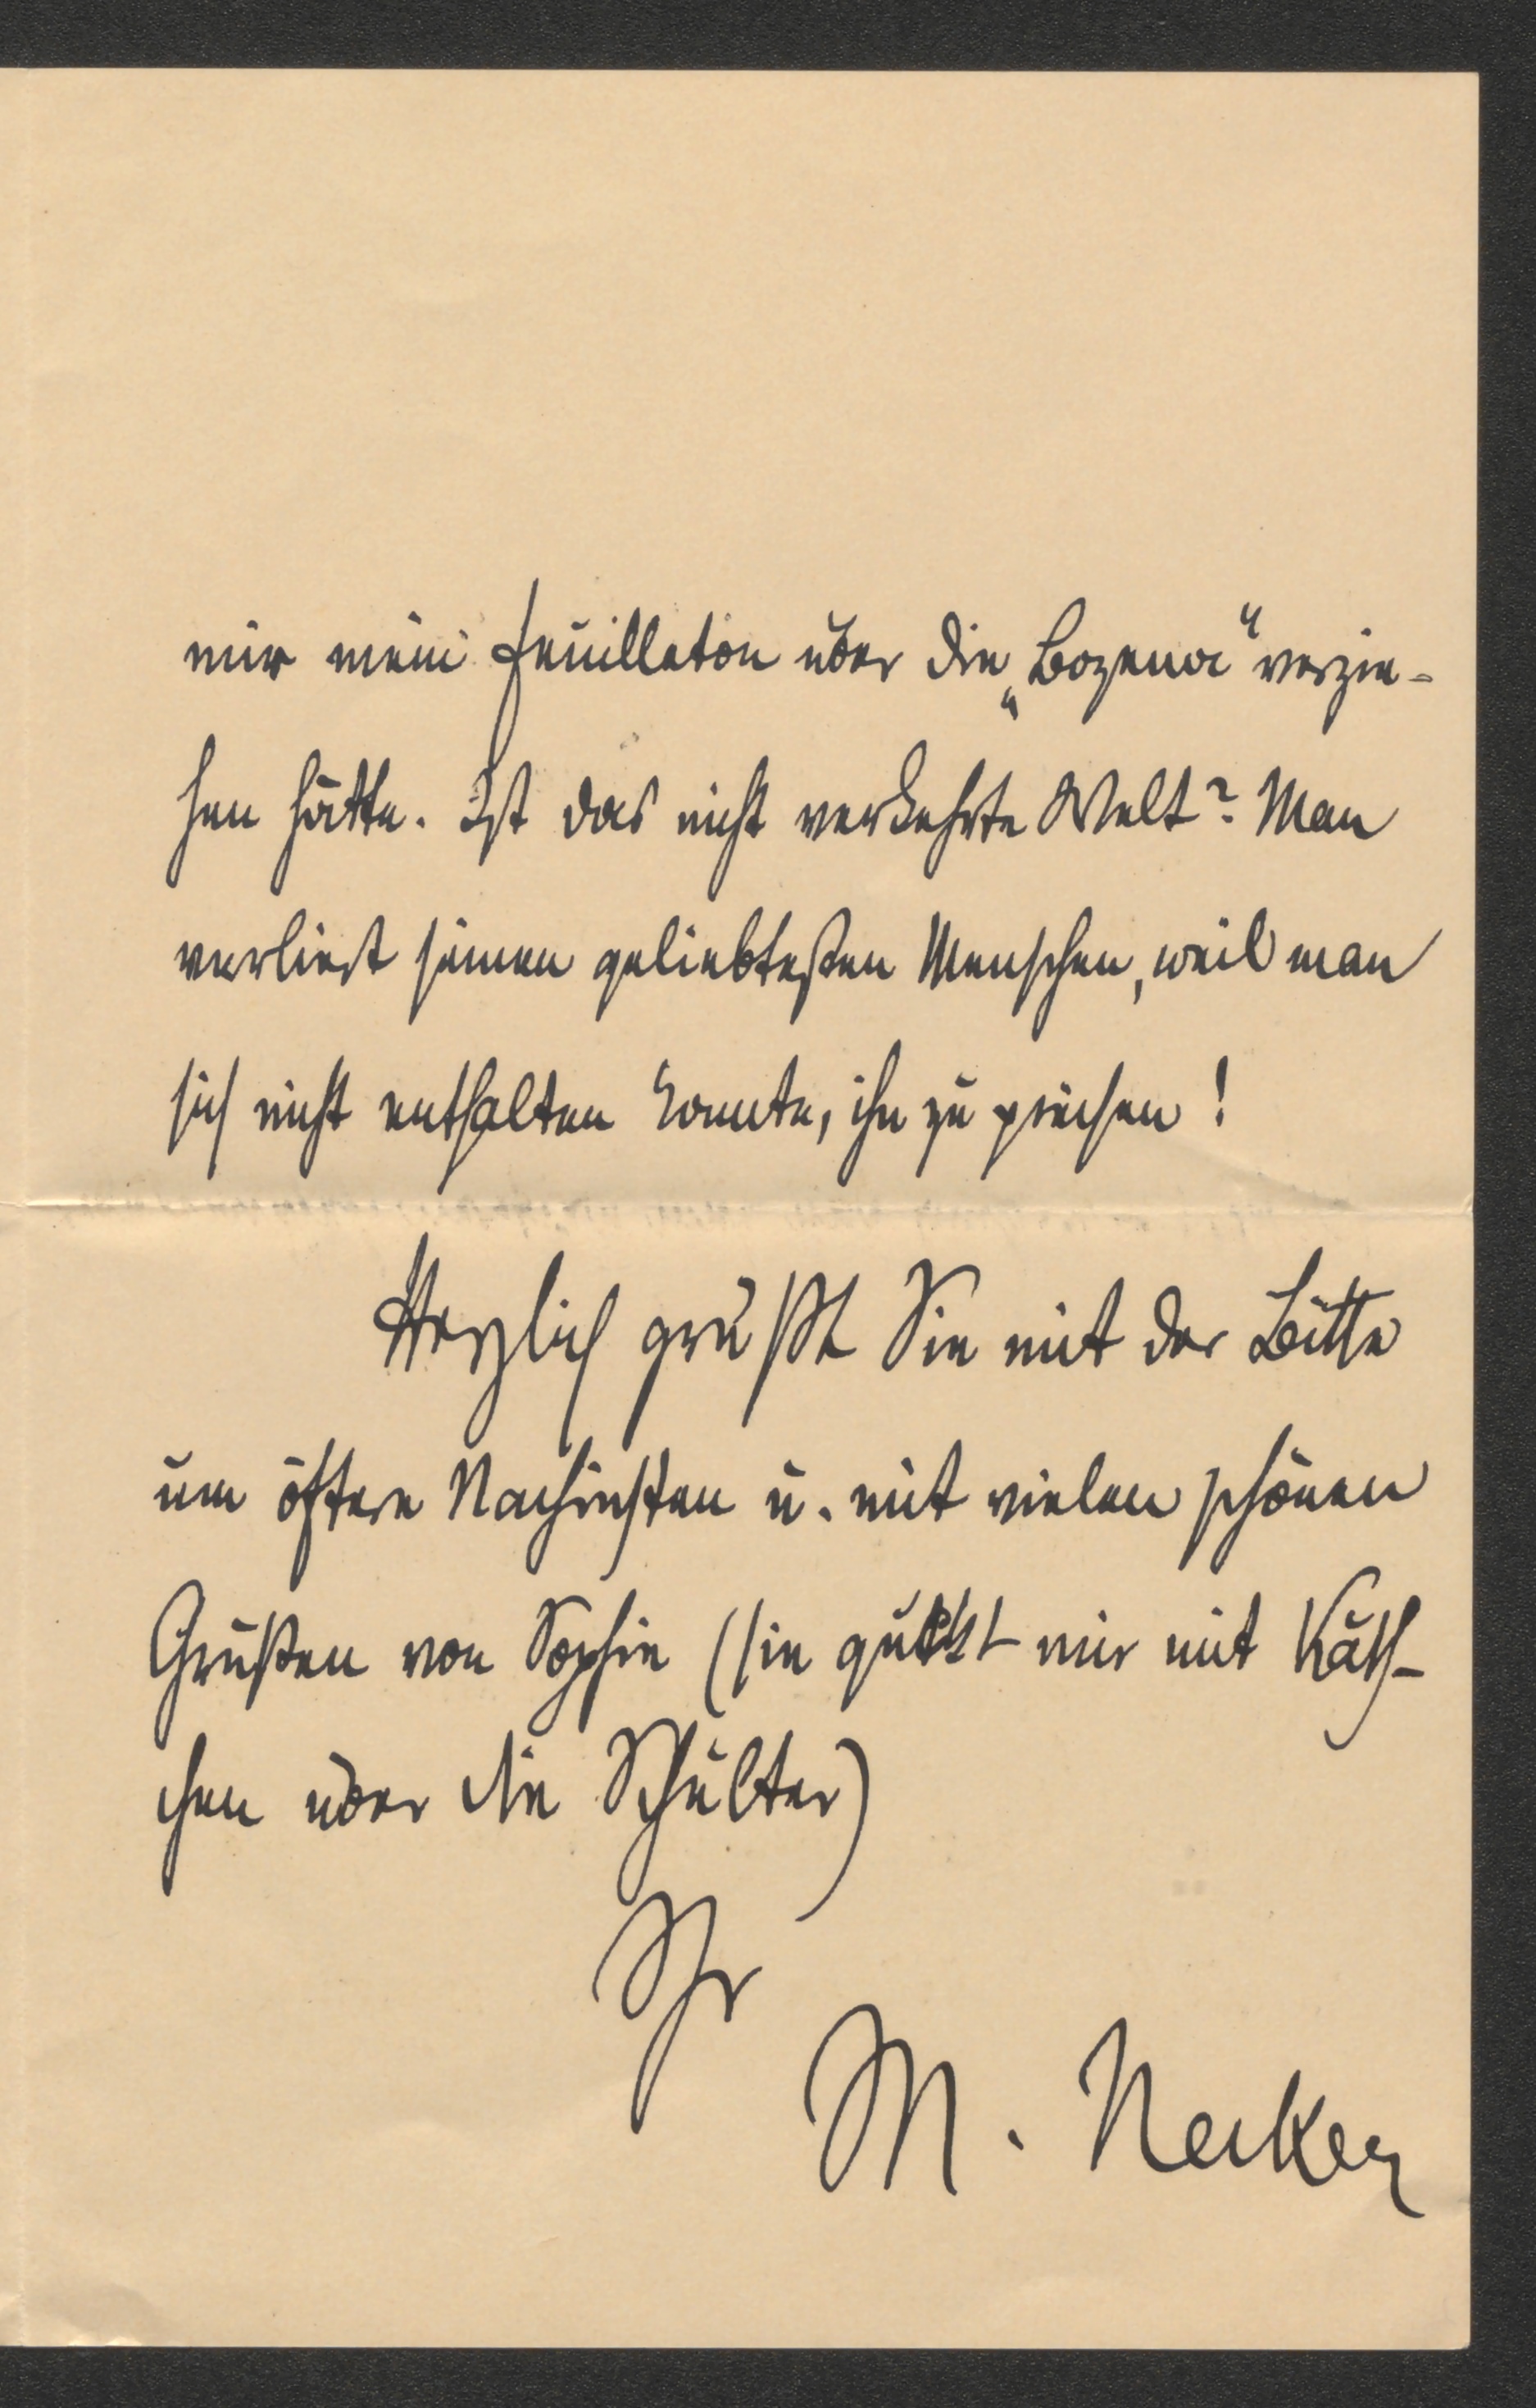 mir mein Feuilleton über die „Bozena“ verzie-
hen hätte. Ist das nicht verkehrte Welt? Man
verliert seinen geliebtesten Menschen, weil man
sich nicht enthalten konnte, ihn zu preisen!
Herzlich grüßt Sie mit der Bitte
um öftere Nachrichten u. mit vielen schönen
Grüßen von Sophie (sie guckt mir mit Käth-
chen über die Schulter)
Ihr
M. Necker